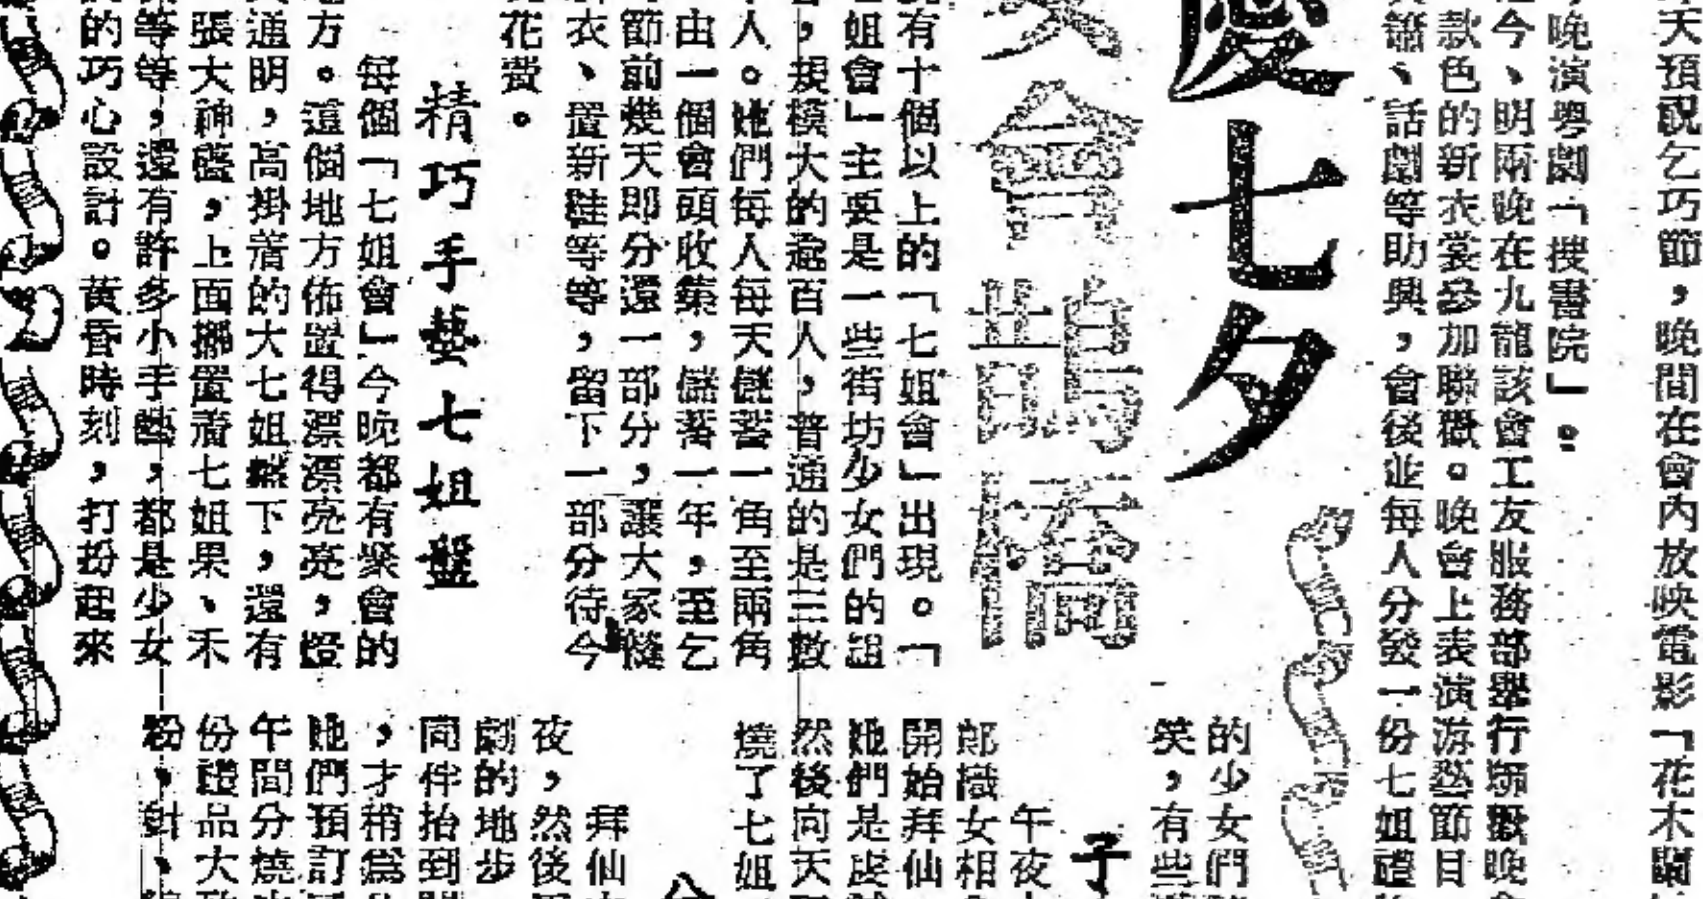 天預祝乞巧節，晚間在會內放映電影「花木蘭
晚演粵劇「搜書院」。
今、明兩晚在九龍該會工友服務部舉行聯歡晚
款色的新衣裳參加聯歡。晚會上表演游藝節目
簫、話劇等助興，會後並每人分發一份七姐禮
慶七夕
會鵲橋
有十個以上的「七姐會」出現。「
姐會」主要是一些街坊少女們的組
，規模大的逾百人，普通的是三數
人。她們每人每天儲蓄一角至兩角
由一個會頭收集，儲蓄一年，至乞
節前幾天即分還一部分，讓大家縫
衣、置新鞋等等，留下一部分待今
花費。
精巧手藝七姐盤
每個「七姐會」今晚都有聚會的
方。這個地方佈置得漂漂亮亮，燈
通明，高掛着的大七姐燈下，還有
張大神枱，上面擺置着七姐果、禾
等等，還有許多小手藝，都是少女
的巧心設計。黃昏時刻，打扮起來
的少女們
笑，有些
子
午夜
郎織女相
開始拜仙
她們是虔
然後向天
燒了七姐
拜仙
夜，然後
劇的地步
同伴抬到
，才稍為
她們預訂
午間分燒
份禮品大
粉，針、